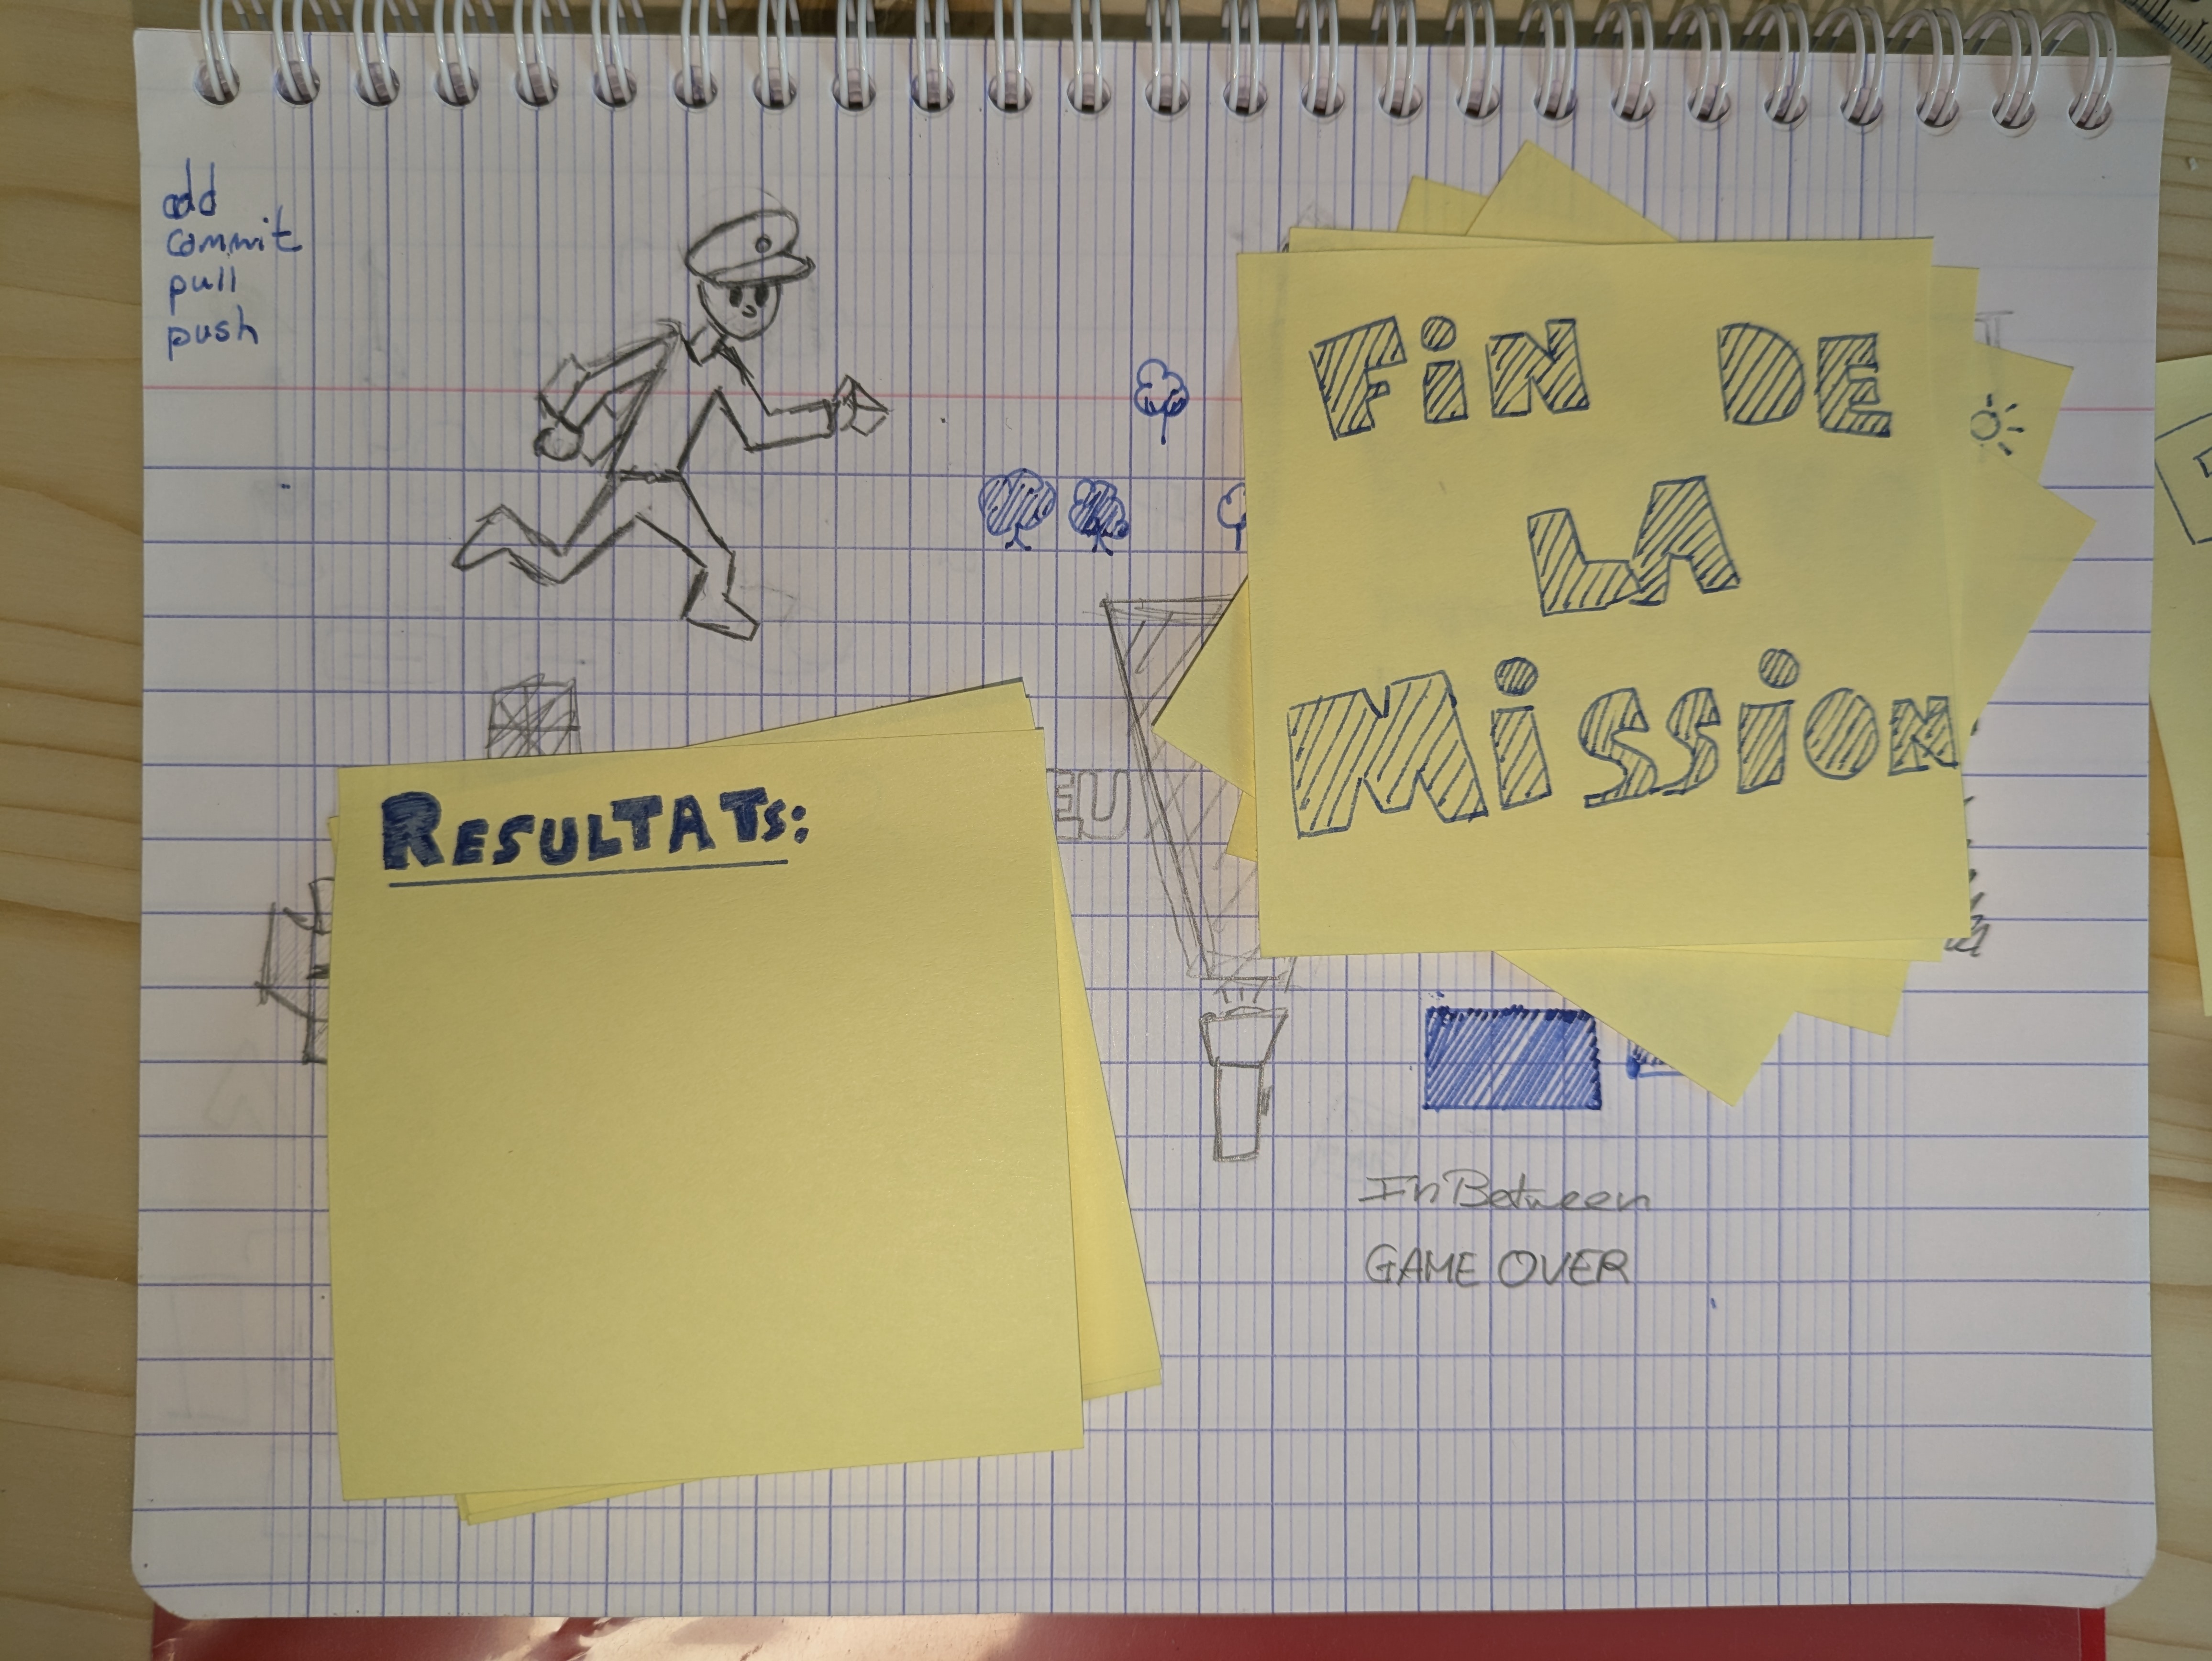 add
commit
pull
push
FiN DE
LA
MiSSiON
RESULTATS:
EU
InBetween
GAME OVER